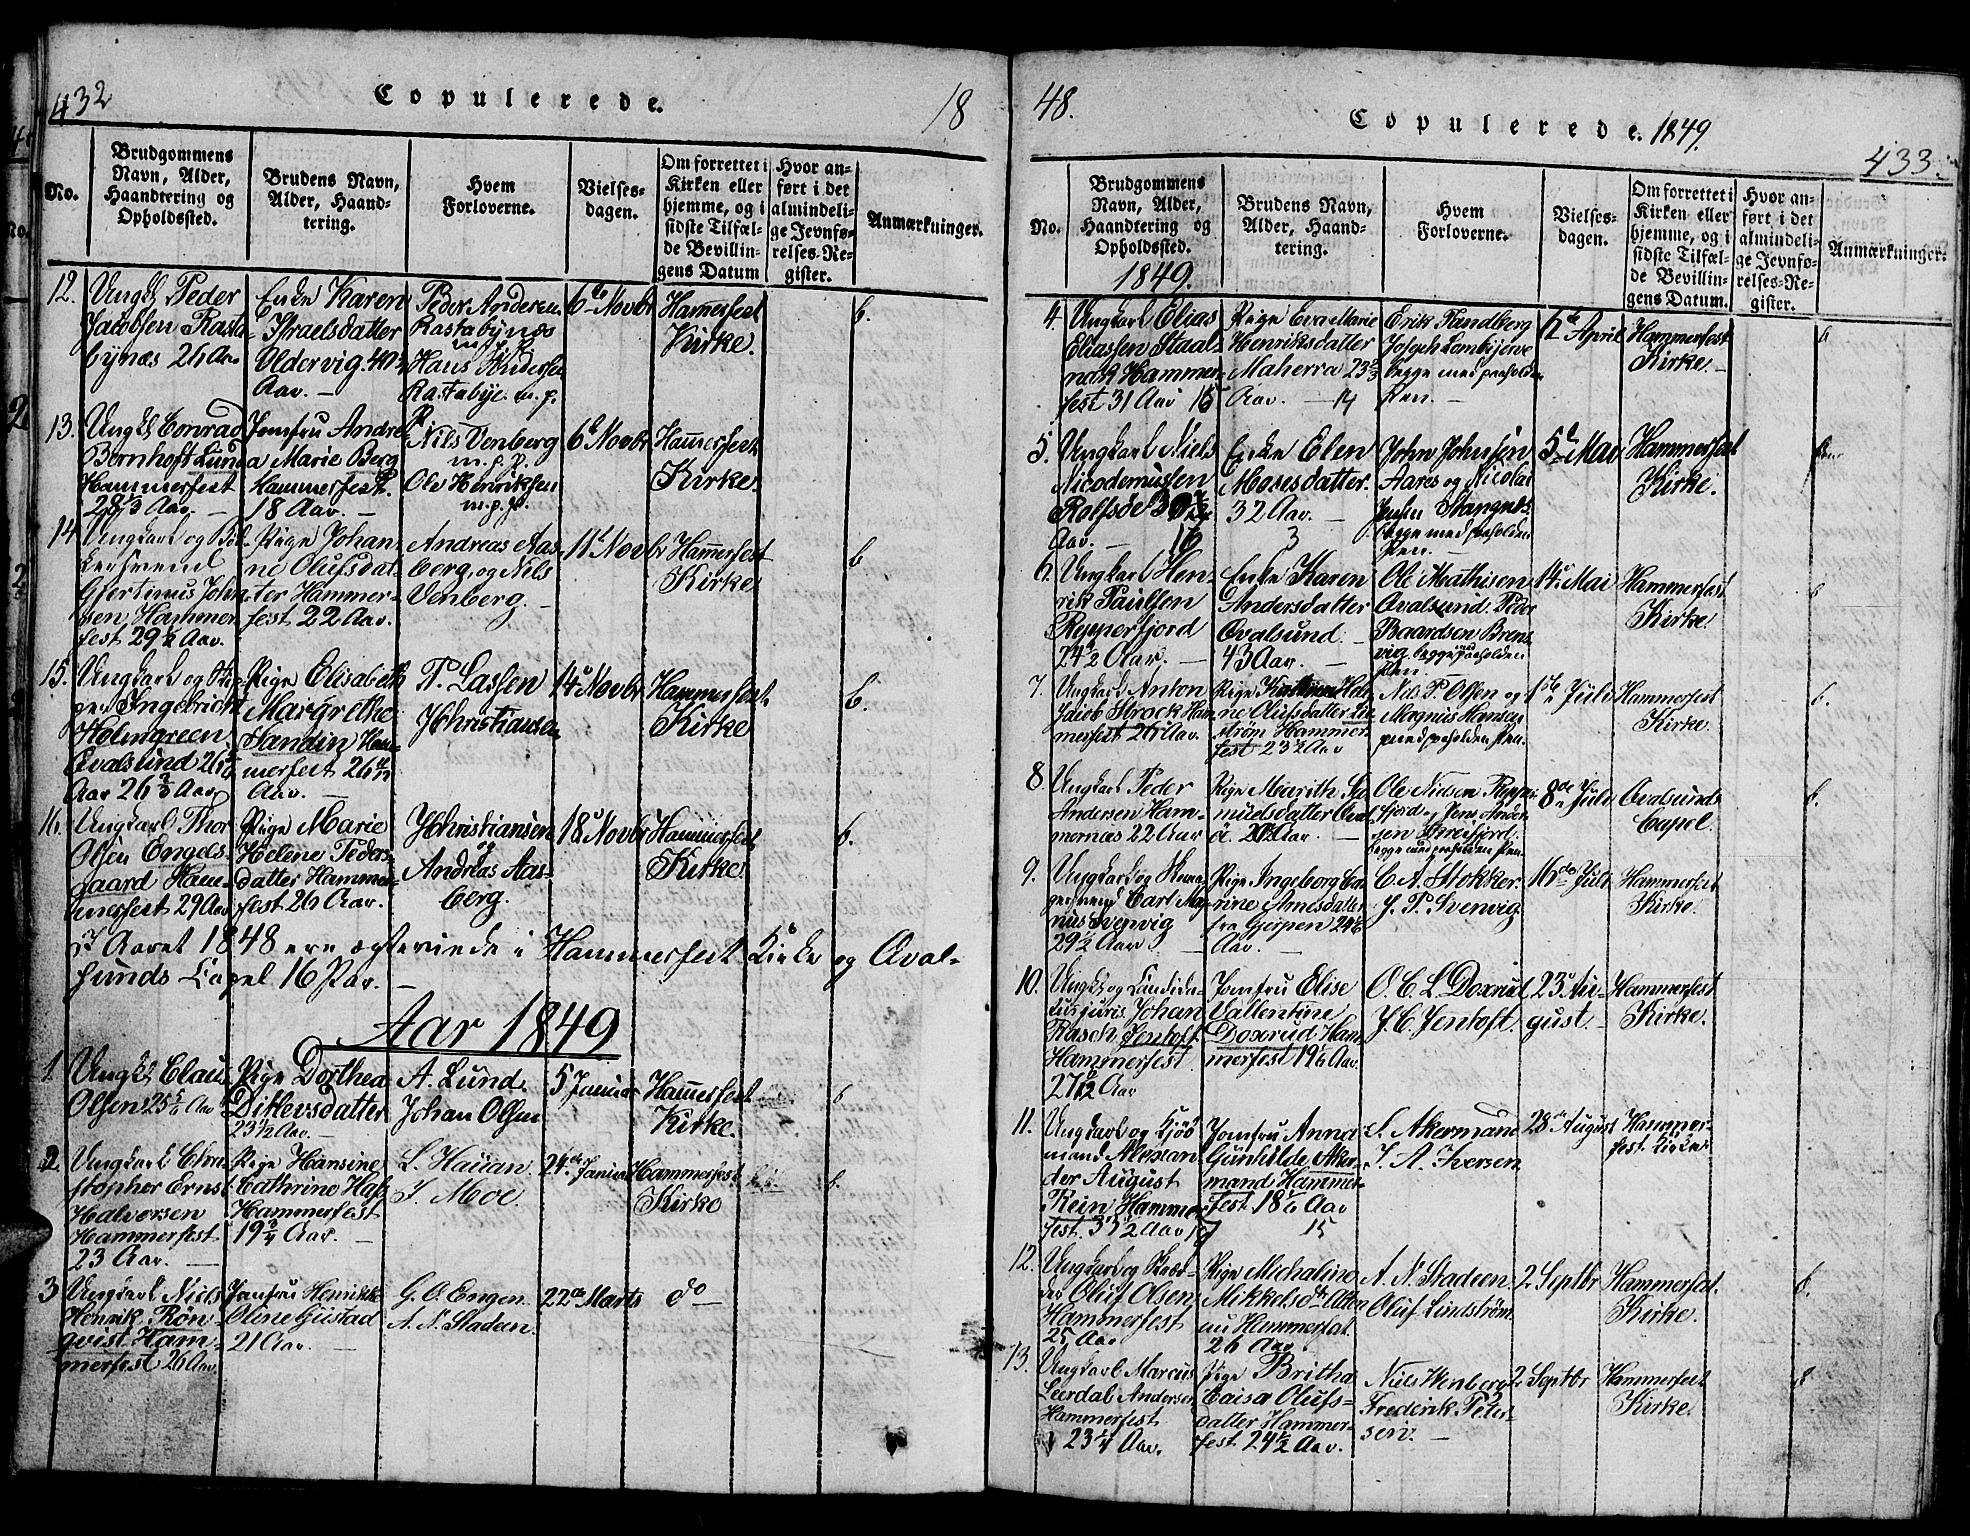 432
Copulerede.
18
No.
Brudgommens
Navn, Alder,
Haandtering og
Opholdssted.
Brudens Navn,
Alder, Haand-
tering.
Hvem
Forloverne.
Vielses-
dagen.
Om forrettet i
Kirken eller
hjemme, og i
sidste Tilfæl-
de Bevillin-
gens Datum
Hvor an-
ført i det
almindeli-
ge Jevnfø-
relses-Re-
gister.
Anmærkninger.
12.
Ungk Peder
Jacobsen Rasta-
bynæs 26 Aar
Enke Karen
Israelsdatter
Aldervig. 40½
Aar. —
Peder Andersen
Rastabynæs
m.p.P.
Hans Andersen
Rastabye. m.p.
P.
6te Novbr
Hammerfest
Kirke.
b.
13.
Ungk Conrad
Bernhoft Lund
Hammerfest
28⅓ Aar. —
Jomfru Andre-
a Marie Berg
Hammerfest.
18 Aar. —
Nils Venberg
m.p.P.
Ole Henriksen
m.p.P.
6te Novbr
Hammerfest
Kirke.
14
Ungkarl og Bød-
kersvend
Gjertinus John-
sen, Hammer-
fest 29½ Aar.
Pige Johan-
ne Olufsdat-
ter Hammer-
fest 22 Aar.
Andreas Aas-
berg, og Nils
Venberg. —
11te Novbr
Hammerfest
Kirke.
b
15.
Ungkarl og
Ingebrickt
Holmgreen,
Qvalsund
Aar 26⅔ Aar
Pige Elisabeth
Margrethe
Sandin Ham-
merfest
Aar. —
P. Lassen
J Christiansen
14de Novbr
Hammerfest
Kirke
b.
16.
Ungkarl Thor
Olsen Engels-
gaard Ham-
merfest 29 Aar
Pige Marie
Helene Peders-
datter Hammer-
fest 26 Aar.
J Christiansen
og
Andreas Aas-
berg.
18de Novbr
Hammerfest
Kirke.
b.
I Aaret 1848 ere ægteviede i Hammerfest Kirke og Qval-
sunds Capel 16 Par. —
Aar 1849
1
Ungk Claus
Olsen
Pige Dorthea
Ditlevsdatter
23½ Aar. —
A. Lund
Johan Olsen
5 Januar
Hammerfest
Kirke.
b
2
Ungkarl Chri-
stopher Ernst
Halversen
Hammerfest
23 Aar. —
Pige Hansine
Cathrine Hass
Hammerfest
19¾ Aar. —
L. Hauan
J. Moe.
24de Januar
Hammerfest
Kirke
b.
3
Ungkarl Niels
Henrik Røn-
qvist Ham-
merfest 26 Aar
Jomfru Henrikke
Oline Gustad
21 Aar. —
G. O. Engen
A. N. Stadeen.
22de Marts
do —
48.
Copulerede. 1849.
433.
No.
Brudgommens
Navn, Alder,
Haandtering og
Opholdssted.
1849.
Brudens Navn,
Alder, Haand-
tering.
Hvem
Forloverne.
Vielses-
dagen.
Om forrettet i
Kirken eller
hjemme, og i
sidste Tilfæl-
de Bevillin-
gens Datum.
Hvor an-
ført i det
almindeli-
ge Jevnfø-
relses-Re-
gister.
Anmærkninger.
4.
Ungkarl Elias
Eliassen Staal-
nack Hammer-
fest 31 Aar 15
Pige Eva Marie
Henriksdatter
Maherra 23⅔
Aar. — 14
Erik Sandberg
Joseph Lombijerve
begge med paaholden
Pen. —
6te April
Hammerfest
Kirke. —
b
5.
Ungkarl Niels
Nicodemussen
Rolfsøe
Aar. — 16
Enke Elen
Mosesdatter.
32 Aar. —
3
John Johnsen
Aarøs og Nicolai
Jensen
begge med paaholden
Pen. —
5te Mai
Hammerfest
Kirke.
6.
Ungkarl Hen-
rik Paulsen
Repperfjord
24½ Aar. —
Enke Karen
Andersdatter
Qvalsund. —
43 Aar. —
Ole Mathisen
Qvalsund. Peder
Baardsen Brens-
vig begge m paaholden
Pen.
14de Mai
Hammerfest
Kirke.
b
7.
Ungkarl Anton
Jacob Strock Ham-
merfest 26 Aar.
Pige
ne Olufsdatter Lin-
strøm Hammer-
fest 23½ Aar
Nils P. Olsen og
Magnus Hansen
med paaholden Pen.
1ste Juli
Hammerfest
Kirke.
b.
8
Ungkarl Peder
Andersen Ham-
mernæs 22 Aar
Pige Marith Sa-
muelsdatter Qval-
Ole Nielsen Repper-
fjord, Jens Ander-
sen
begge med paaholden Pen.
8de Juli
Qvalsunds
Capel.
b.
9.
Ungkarl og
Carl Mag-
nus Svenvig
29½ Aar —
Pige Ingeborg Ca-
rine Arnesdatter
fra Gjerpen
Aar. —
C. A. Stokker.
J. P. Svenvig
16de Juli
Hammerfest
Kirke.
10.
Ungk og Candida-
tus juris Johan
Rasch Jentoft.
Hammerfest.
Aar
Jomfru Elise
Vallentine
Doxrud Ham-
merfest 19⅙ Aar.
O. C. L. Doxrud
J. C. Jentoft.
23de Au-
gust. —
Hammerfest
Kirke.
11.
Ungkarl og Kjøb-
mand Alexan-
der August
Rein Hammer-
fest. 33½ Aar 17
Jomfru Anna
Gunhilde Aker-
mand Hammer-
fest 18⅙ Aar
15
S. Akermand
J. A. Iversen
28de August
Hammer-
fest Kirke.
12.
Ungkarl og
Oluf Olsen
Hammerfest
25 Aar
Pige Michaline
Mikkelsdtr
Hammerfest.
26 Aar.
A. N. Stadeen
Oluf Lindstrøm
2 Septbr
Hammerfest.
Kirke.
b.
13.
Ungkarl Marcus
Leerdal Andersen
Hammerfest
23¼ Aar.
Pige Britha
Caisa Olufs-
datter Hammer-
fest 24½ Aar.
Niels Wenberg
Frederik Peter-
sen. —
2 Septbr
Hammerfest
Kirke.